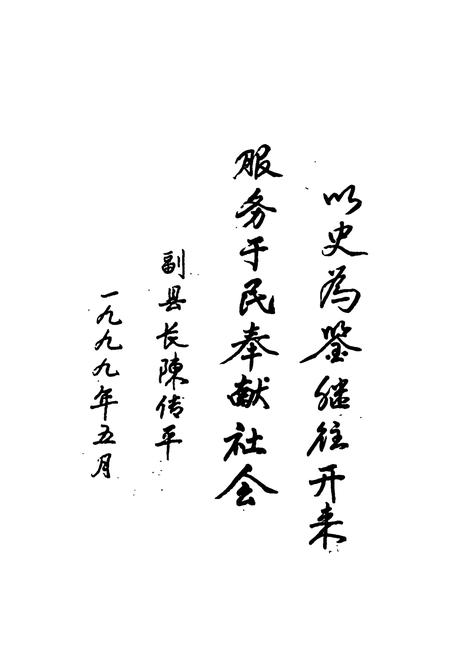 以史为鉴继往开来
服务于民奉献社会
副县长陳传平
一九九九年五月